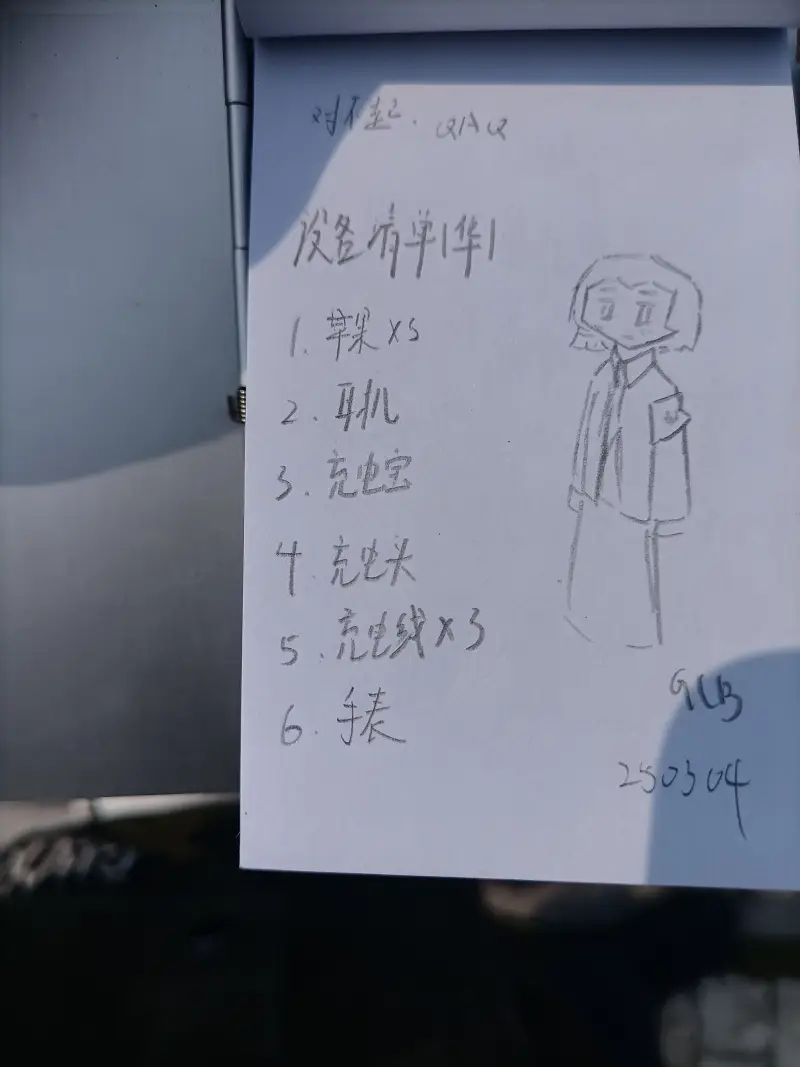 对不起. QAQ
设备清单|华|
1. 苹果×5
2. 耳机
3. 充电宝
4. 充电头
5. 充电线×3
6. 手表
GLB
250304